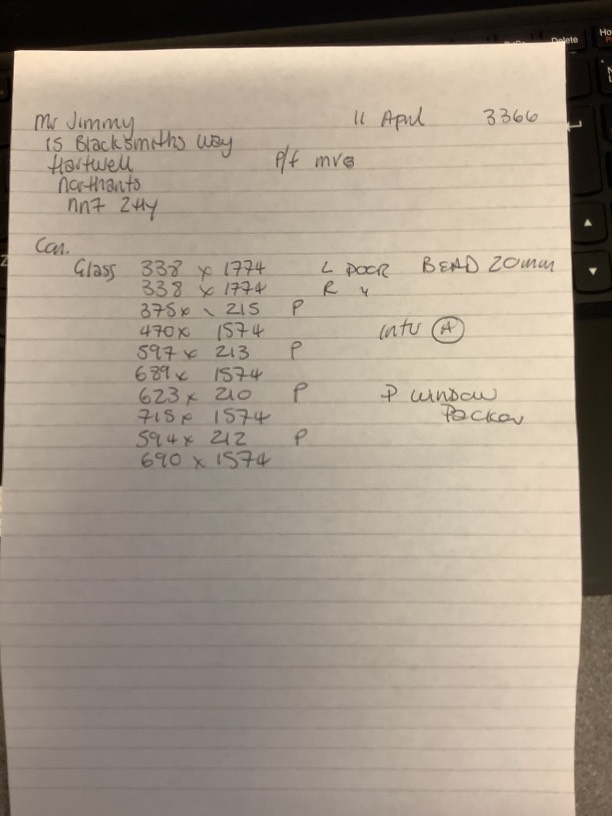 Mr Jimmy 11 April 3366
15 Blacksmiths Way
Hartwell P/F mvs
Northants
NN7 2HY
Con.
Glass 338 x 1774 L DOOR BEAD 20mm
338 x 1774 R "
375x 215 P
470x 1574 intu A
597 x 213 P
689 x 1574
623 x 210 P P WINDOW
715 x 1574 Packer
594 x 212 P
690 x 1574
Delete